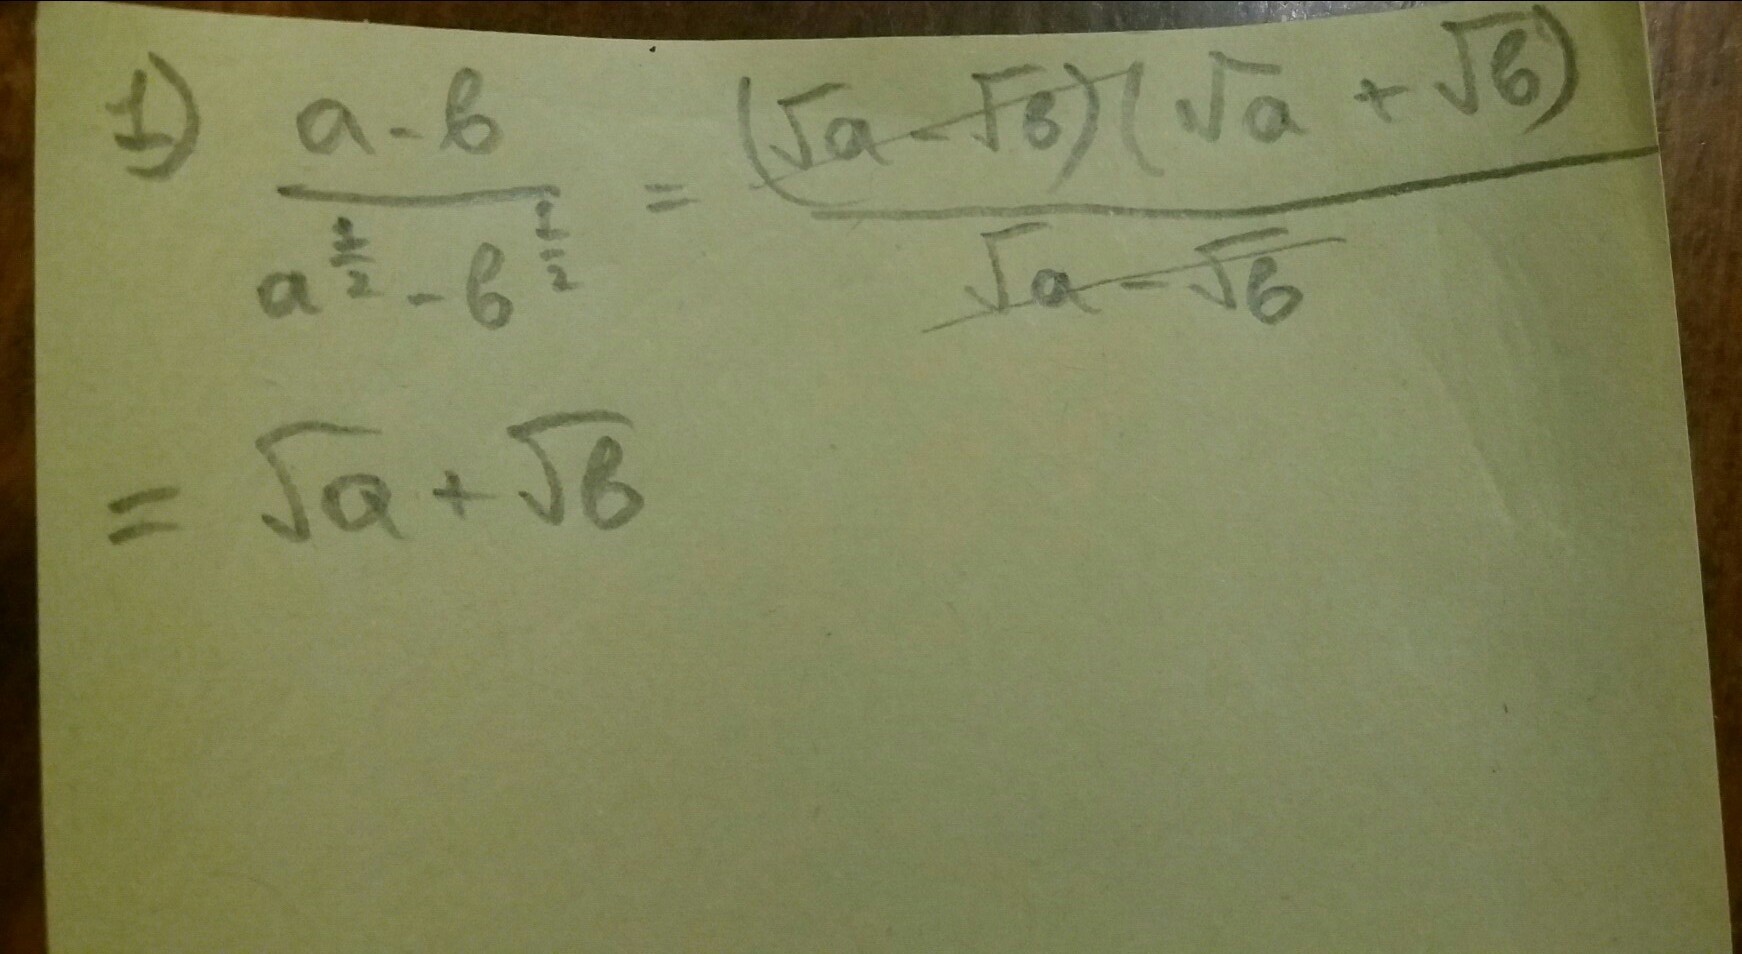 1) (a - b)/(a^(1/2) - b^(1/2)) = ((√a - √b)(√a + √b))/(√a - √b)
= √a + √b